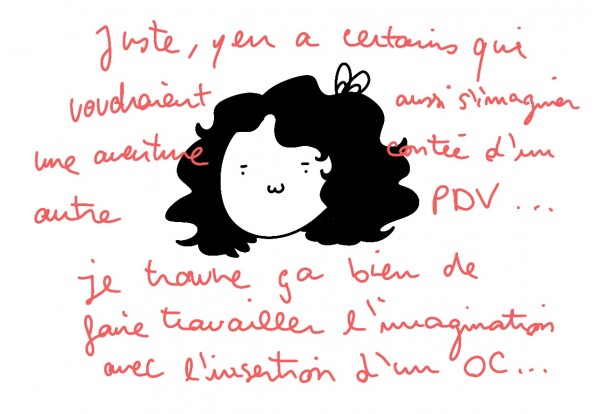 Juste, y en a certains qui
voudraient aussi s'imaginer
une aventure contée d'un
autre PDV ...
je trouve ça bien de
faire travailler l'imagination
avec l'insertion d'un OC...